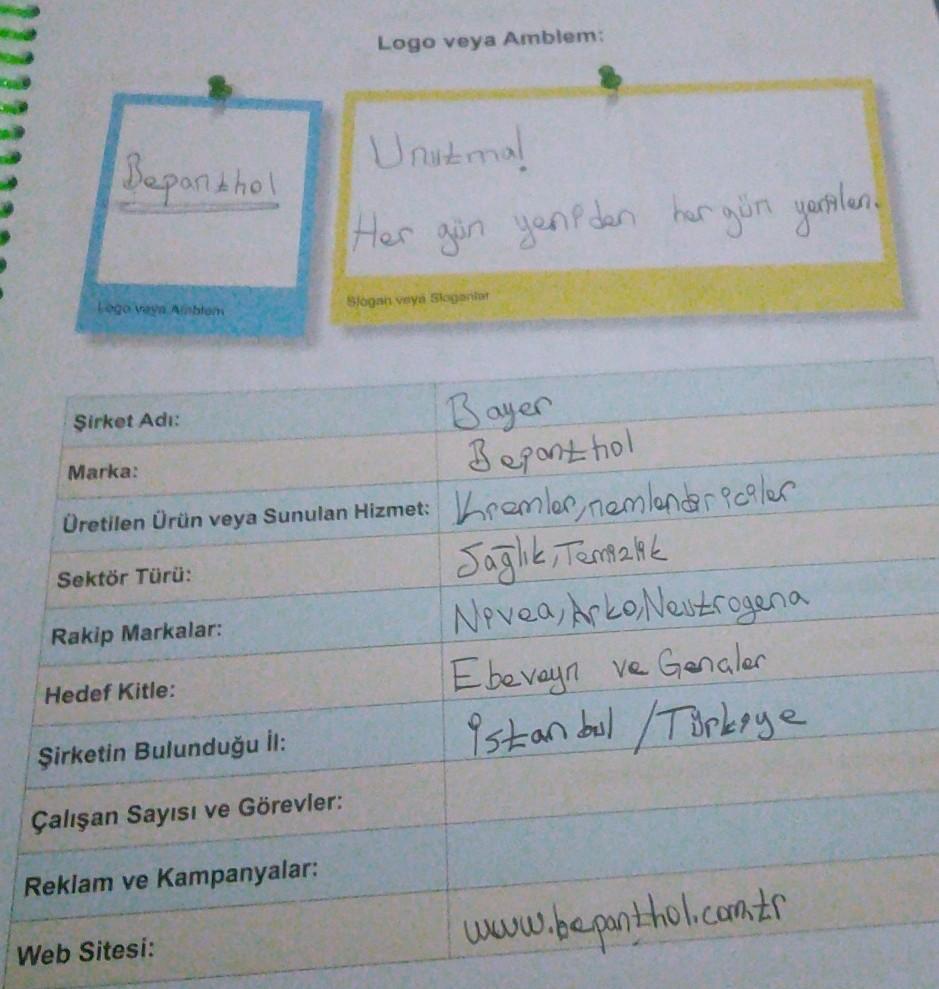 Logo veya Amblem:
Bepanthol
Logo veya Amblem
Unutma!
Her gün yeniden her gün yenilen.
Slogan veya Sloganlar
Şirket Adı: Bayer
Marka: Bepanthol
Üretilen Ürün veya Sunulan Hizmet: Kremler, nemlendiriciler
Sektör Türü: Sağlık, Temizlik
Rakip Markalar: Nivea, Arko, Neutrogena
Hedef Kitle: Ebeveyn ve Gençler
Şirketin Bulunduğu İl: İstanbul / Türkiye
Çalışan Sayısı ve Görevler:
Reklam ve Kampanyalar:
Web Sitesi: www.bepanthol.com.tr